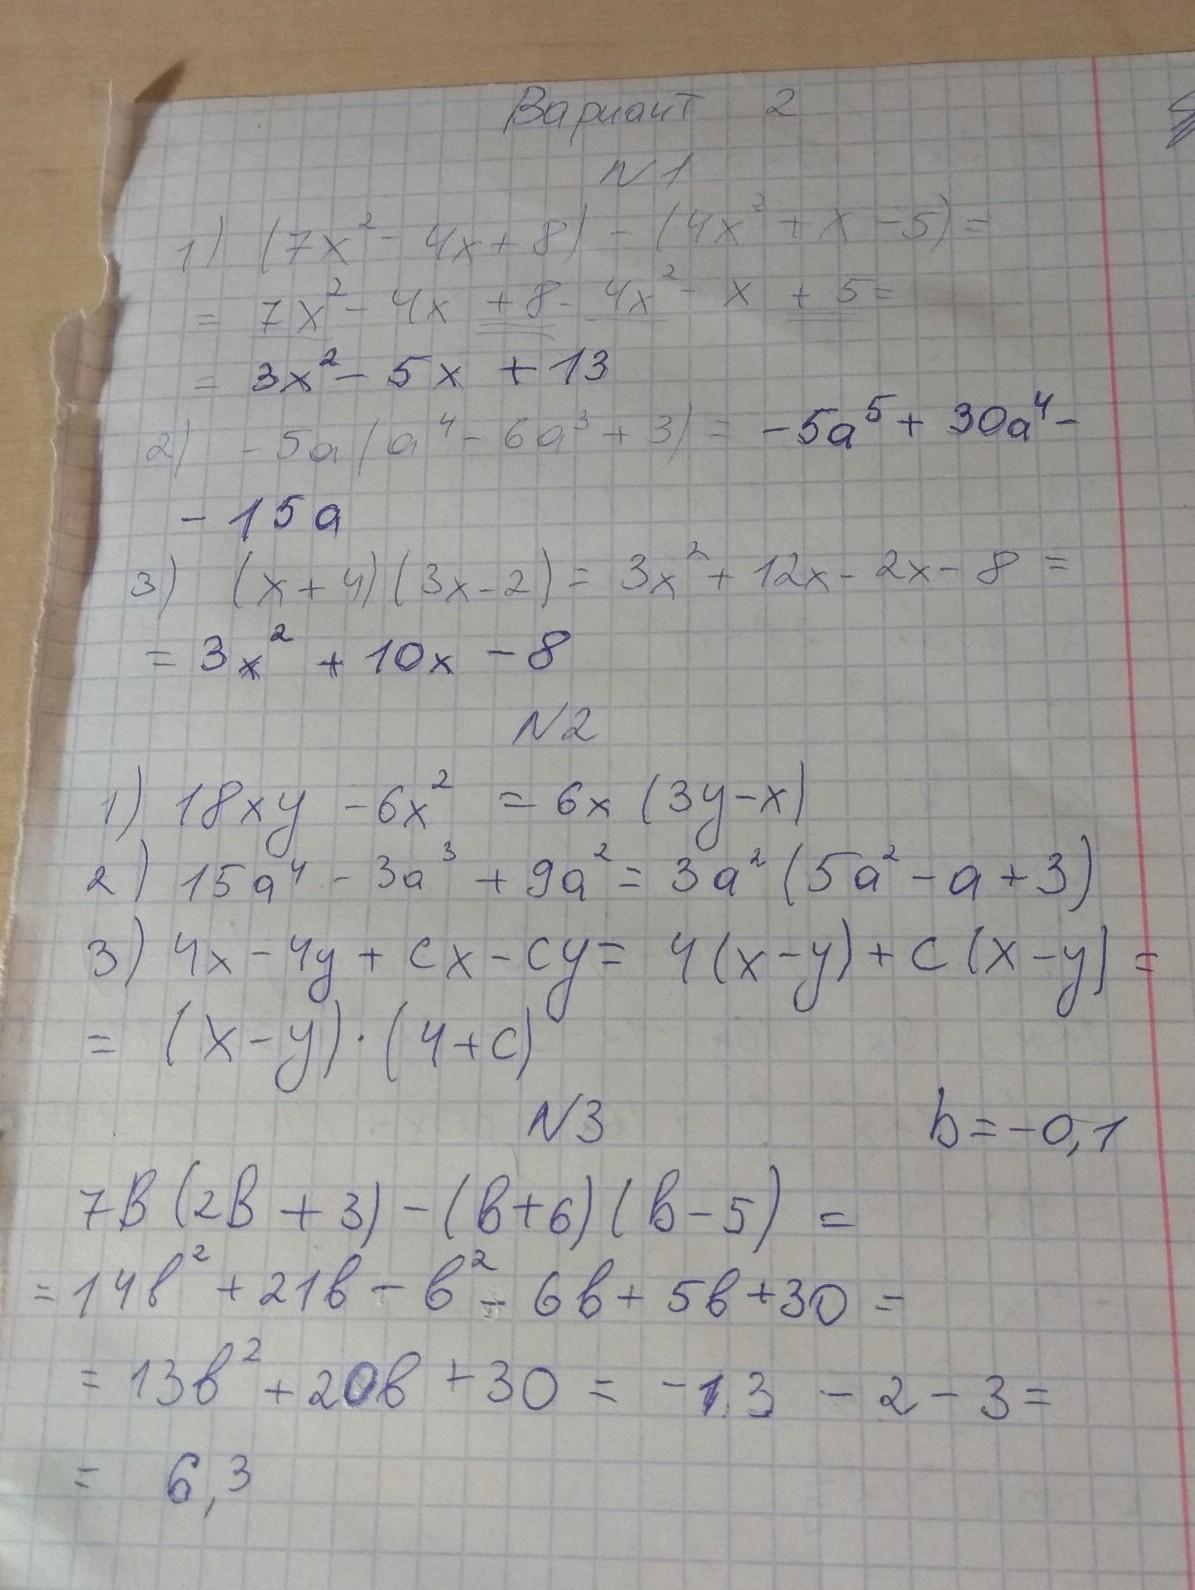 Вариант 2
N1
1) (7x² - 4x + 8) - (4x² + x - 5) =
= 7x² - 4x + 8 - 4x² - x + 5 =
= 3x² - 5x + 13
2) - 5a (a⁴ - 6a³ + 3) = -5a⁵ + 30a⁴ -
- 15a
3) (x + 4)(3x - 2) = 3x² + 12x - 2x - 8 =
= 3x² + 10x - 8
N2
1) 18xy - 6x² = 6x (3y - x)
2) 15a⁴ - 3a³ + 9a² = 3a² (5a² - a + 3)
3) 4x - 4y + cx - cy = 4(x - y) + c(x - y) =
= (x - y) · (4 + c)
N3 b = -0,1
7в (2в + 3) - (в + 6)(в - 5) =
= 14в² + 21в - в² - 6в + 5в + 30 =
= 13в² + 20в + 30 = -1,3 - 2 - 3 =
= 6,3